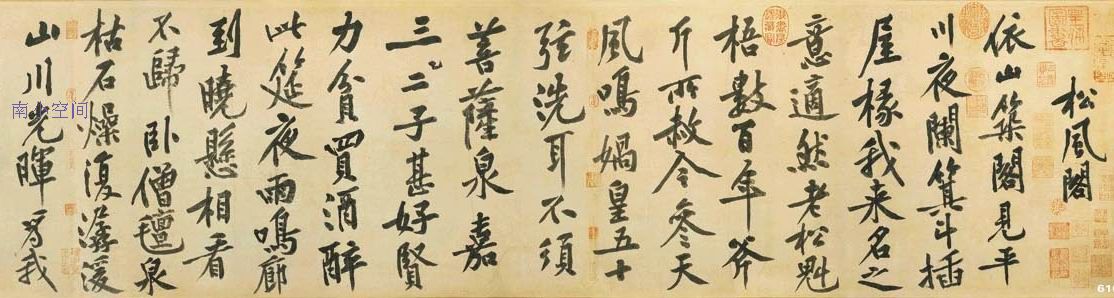 松風閣
依山築閣見平
川夜闌箕斗插
屋椽我来名之
意適然老松魁
梧數百年斧
斤所赦今參天
風鳴媧皇五十
弦洗耳不須
菩薩泉嘉
三二子甚好賢
力貧買酒醉
此筵夜雨鳴廊
到曉懸相看
不歸卧僧氈泉
枯石燥復潺湲
山川光暉為我
南 空间
61